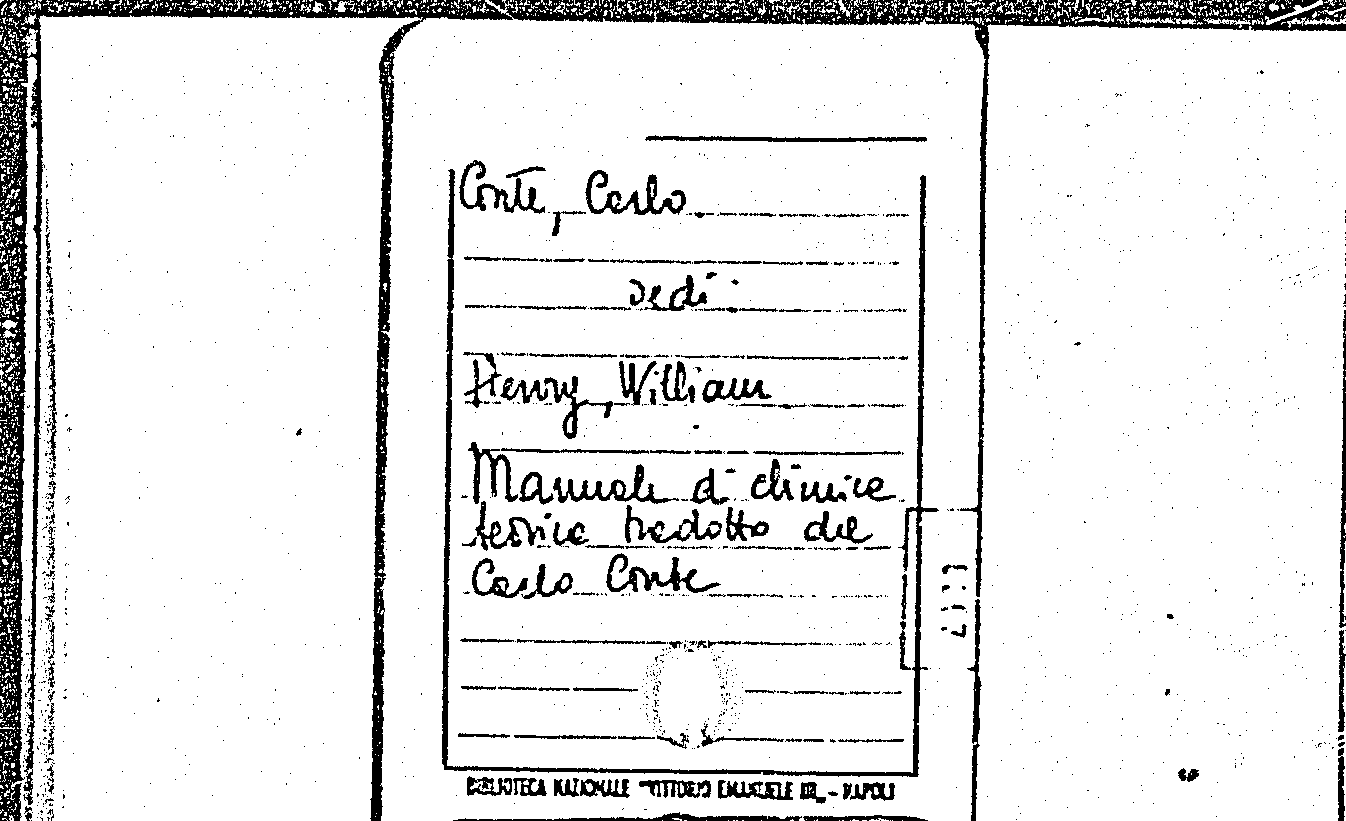 Conte, Carlo.
vedi:
Henry, William
Manuale di chimica
teorica tradotto da
Carlo Conte
BIBLIOTECA NAZIONALE "VITTORIO EMANUELE III" - NAPOLI